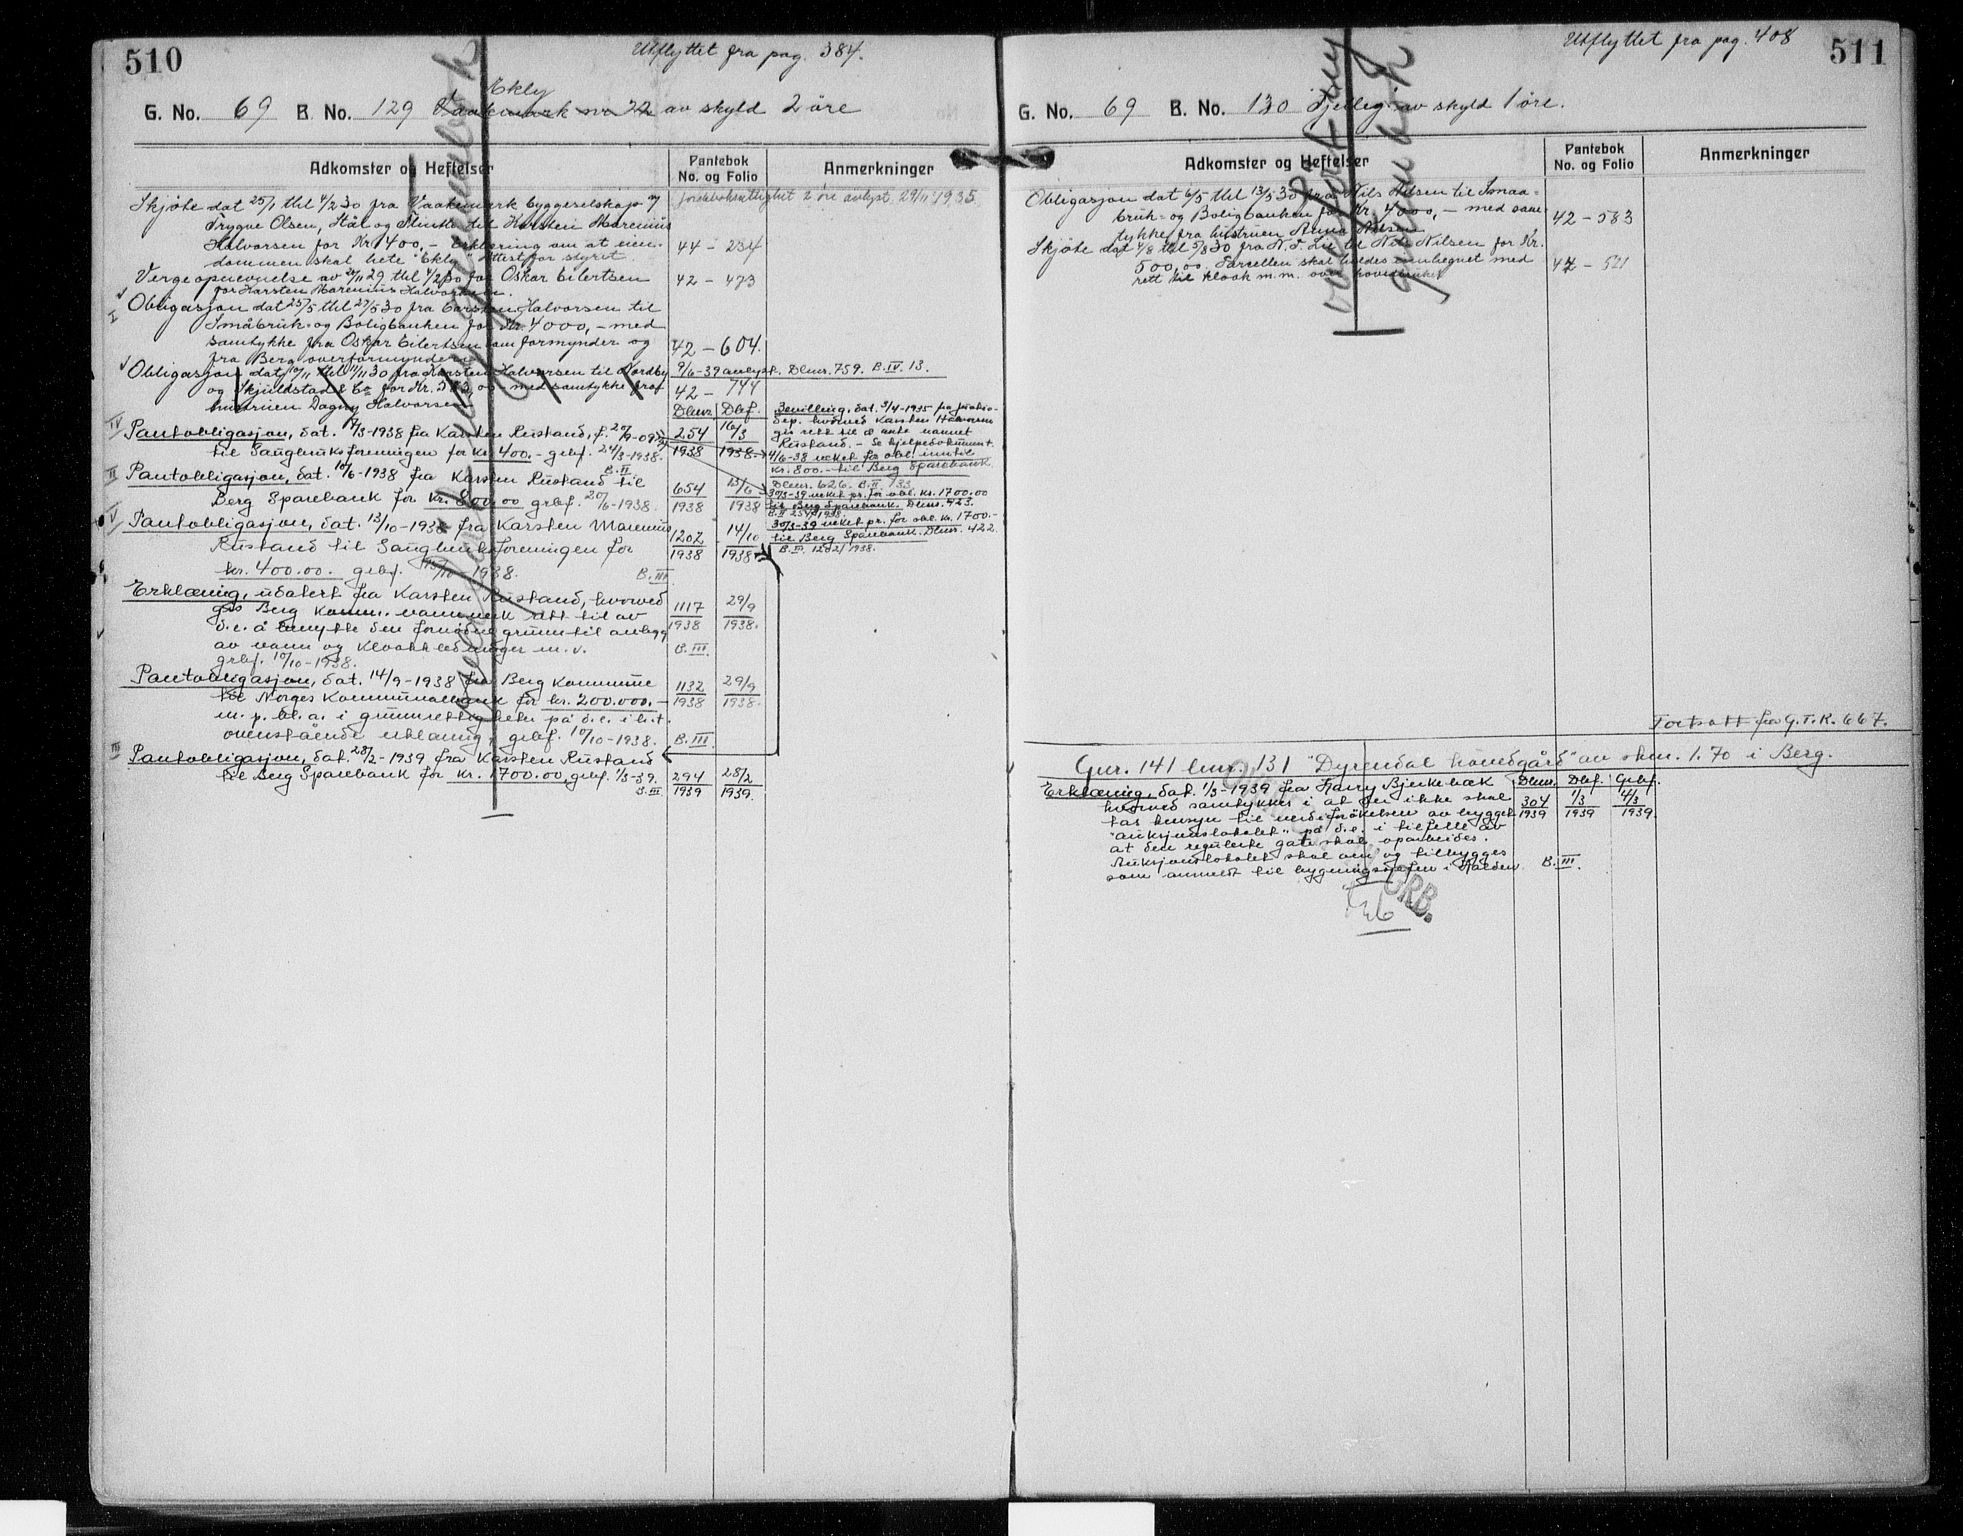 510
Utflyttet fra pag. 384.
Ekly
G. No. 69 B. No. 129 Vaakemark nr 22 av skyld 2 øre
Adkomster og Heftelser
Pantebok
No. og Folio
Anmerkninger
Skjøte dat 25/1 thl 4/2 30 fra Vaakemark byggeselskap v/
Trygve Olsen, Stål og Flinth til Karsten Marenius
Halvorsen for Kr 400,- Erklæring om at eien-
dommen skal hete "Ekly". Attest for styret.
44 - 234
forkjøbsrettighet 2 øre avlyst 29/11 1935
Vergeopnevnelse av 29/11 29 thl 4/2 30 for Oskar Eilertsen
for Karsten Marenius Halvorsen.
42 - 473
I
Obligasjon dat 23/5 thl 27/5 30 fra Carsten Halvorsen til
Småbruk- og Boligbanken for Kr. 4000,- med
samtykke fra Oskar Eilertsen som formynder og
fra Berg overformynderi
42 - 604.
Obligasjon dat 10/11 thl 11/11 30 fra Karsten Halvorsen til Nordby
og Skjuldstad & Co for Kr. med samtykke fra
hustruen Dagny Halvorsen
9/6-39 avlyst. Dbnr. 759. B.IV. 13.
42 - 744
Dbnr. Dbf.
IV
Pantobligasjon, dat. 14/3-1938 fra Karsten Rustand, f. 20/9-09
til Sauglinksforeningen for kr. 400.- grbf. 24/3-1938.
B.II
254 16/3
1938 1938
Bevilling, dat. 3/4-1935 fra justis-
dep. hvorved Karsten Halvorsen
gis rett til å anta navnet
Rustand. - Se hjelpedokument.
4/6-38 veket for obl. inntil
kr. 800.- til Berg Sparebank
Dbnr. 626. B.II 133
II
Pantobligasjon, dat. 10/6-1938 fra Karsten Rustand til
Berg Sparebank for kr. 800.00 grbf. 20/6-1938.
654 13/6
1938 1938
30/3-39 veket pr. for obl. kr. 1700.00
til Berg Sparebank. Dbnr. 423.
B.II 254/1938.
V
Pantobligasjon, dat. 13/10-1938 fra Karsten Marenius
Rustand til Sauglinksforeningen for
kr. 400.00. grbf. 15/10-1938.
B.III
1202 14/10
1938 1938
30/3-39 veket pr. for obl. kr. 1700.-
til Berg Sparebank. Dbnr. 422
B.III. 1202/1938.
Erklæring, udatert fra Karsten Rustand, hvorved
gis Berg komm. vannverk rett til av
d.e. å benytte den fornødne grunn til anlegg
av vann og kloakkledninger m.v.
grbf. 10/10-1938.
1117 29/9
1938 1938.
B.III.
Pantobligasjon, dat. 14/9-1938 fra Berg kommune
til Norges Kommunalbank for kr. 200.000.-
m.p. bl.a. i grunnrettigheter på d.e. i h.t.
ovenstående erklæring, grbf. 10/10-1938.
1132 29/9
1938 1938.
B.III.
III
Pantobligasjon, dat. 28/2-1939 fra Karsten Rustand
til Berg Sparebank for kr. 1700.00, grbf. 1/3-39.
B.III
294 28/2
1939 1939.
overført ny grunnbok
511
Utflyttet fra pag. 408
G. No. 69 B. No. 130 Fjelleg av skyld 1 øre.
Adkomster og Heftelser
Pantebok
No. og Folio
Anmerkninger
Obligasjon dat 6/5 thl 13/5 30 fra Nils Nilsen til Smaa-
bruk- og Boligbanken for Kr. 4000,- med sam-
tykke fra hustruen Anna Nilsen
42 - 583
Skjøte dat 4/8 thl 5/8 30 fra N. T. Lie til Nils Nilsen for Kr.
500,00. Parcellen skal holdes innhegnet med
rett til kloak m.m. over hovedbruket
42 - 521
overført ny grunnbok
Fortsatt fra G.T.R. 667.
Gnr. 141 bnr. 131 "Dyrendal hovedgård" av skm. 1.70 i Berg.
Dbnr. Dbf. Grbf.
Erklæring, dat. 1/3-1939 fra Harry Bjerkebæk
hvorved samtykkes i at der ikke skal
tas hensyn til verdiforøkelsen av bygget
"auksjonslokalet" på d.e. i tilfelle av
at den regulerte gate skal oparbeides.
Auksjonslokalet skal om og tilbygges
som anmeldt til bygningssjefen i Halden
304 1/3 4/3
1939 1939 1939.
B.III.
ORB.